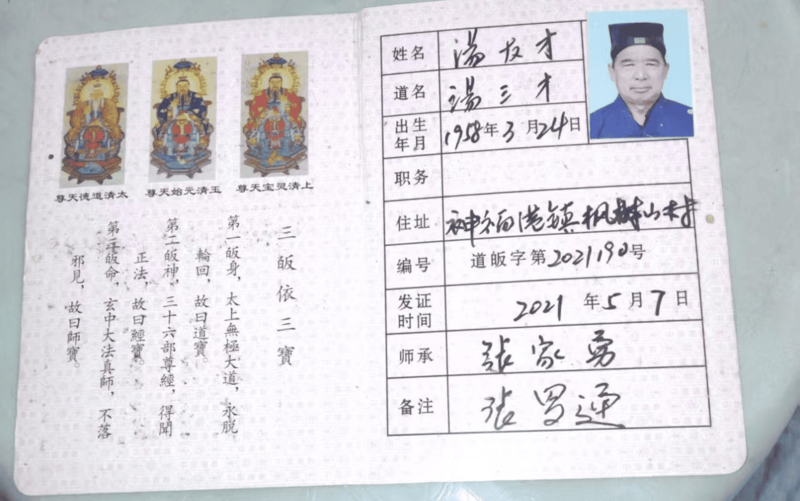 上清灵宝天尊
玉清元始天尊
太清道德天尊
三皈依三寶
第一皈身，太上無極大道，永脱
輪回，故曰道寶。
第二皈神，三十六部尊經，得聞
正法，故曰經寶。
第三皈命，玄中大法真師，不落
邪見，故曰師寶。
姓名 湯友才
道名 湯三才
出生年月 1958年3月24日
职务
住址 神福港镇枫树山村
编号 道皈字第2021190号
发证时间 2021年5月7日
师承 張家勇
备注 张